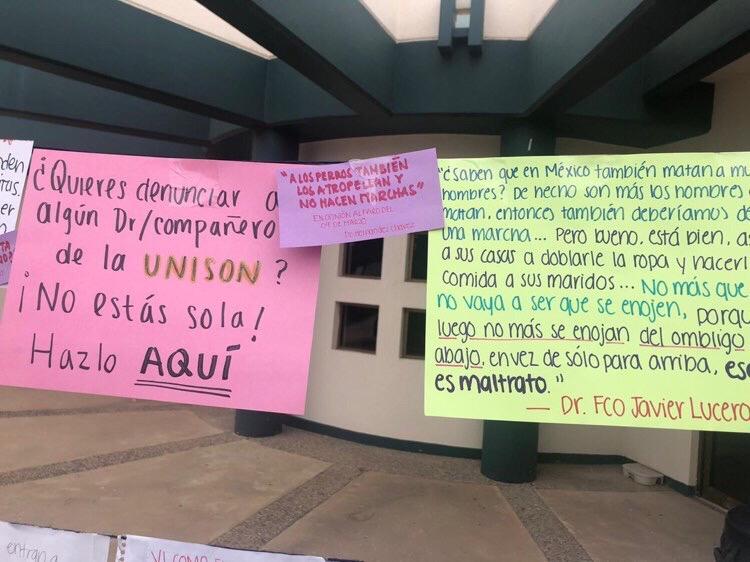 ¿Quieres denunciar a
algún Dr/compañero
de la UNISON?
¡No estás sola!
Hazlo AQUÍ
"A LOS PERROS TAMBIÉN
LOS ATROPELLAN Y
NO HACEN MARCHAS"
EN OPINIÓN AL PARO DEL
09 DE MARZO
Dr. Hernandez Chavez
"¿Saben que en México también matan a
hombres? De hecho son más los hombres
matan, entonces también deberíamos
una marcha... Pero bueno, está bien,
a sus casas a doblarle la ropa y
comida a sus maridos... No más que
no vaya a ser que se enojen,
luego no más se enojan del ombligo
abajo, en vez de sólo para arriba,
es maltrato."
— Dr. Fco Javier Lucero
entran a